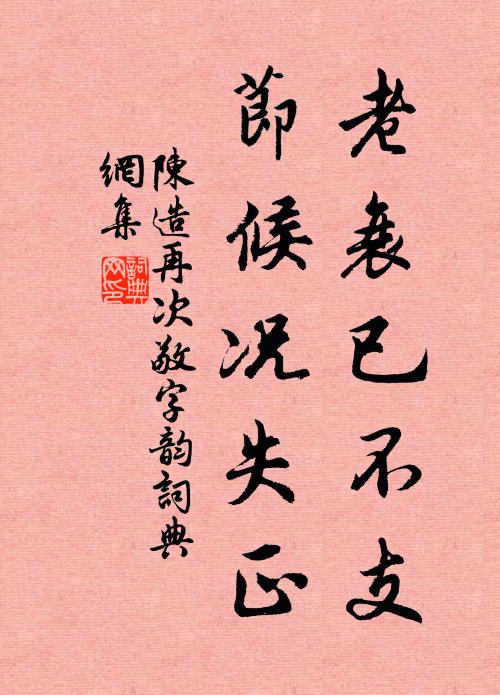 老衰已不支
節候况失正
陳造再次敬字韵詞典
網集
詞典網印